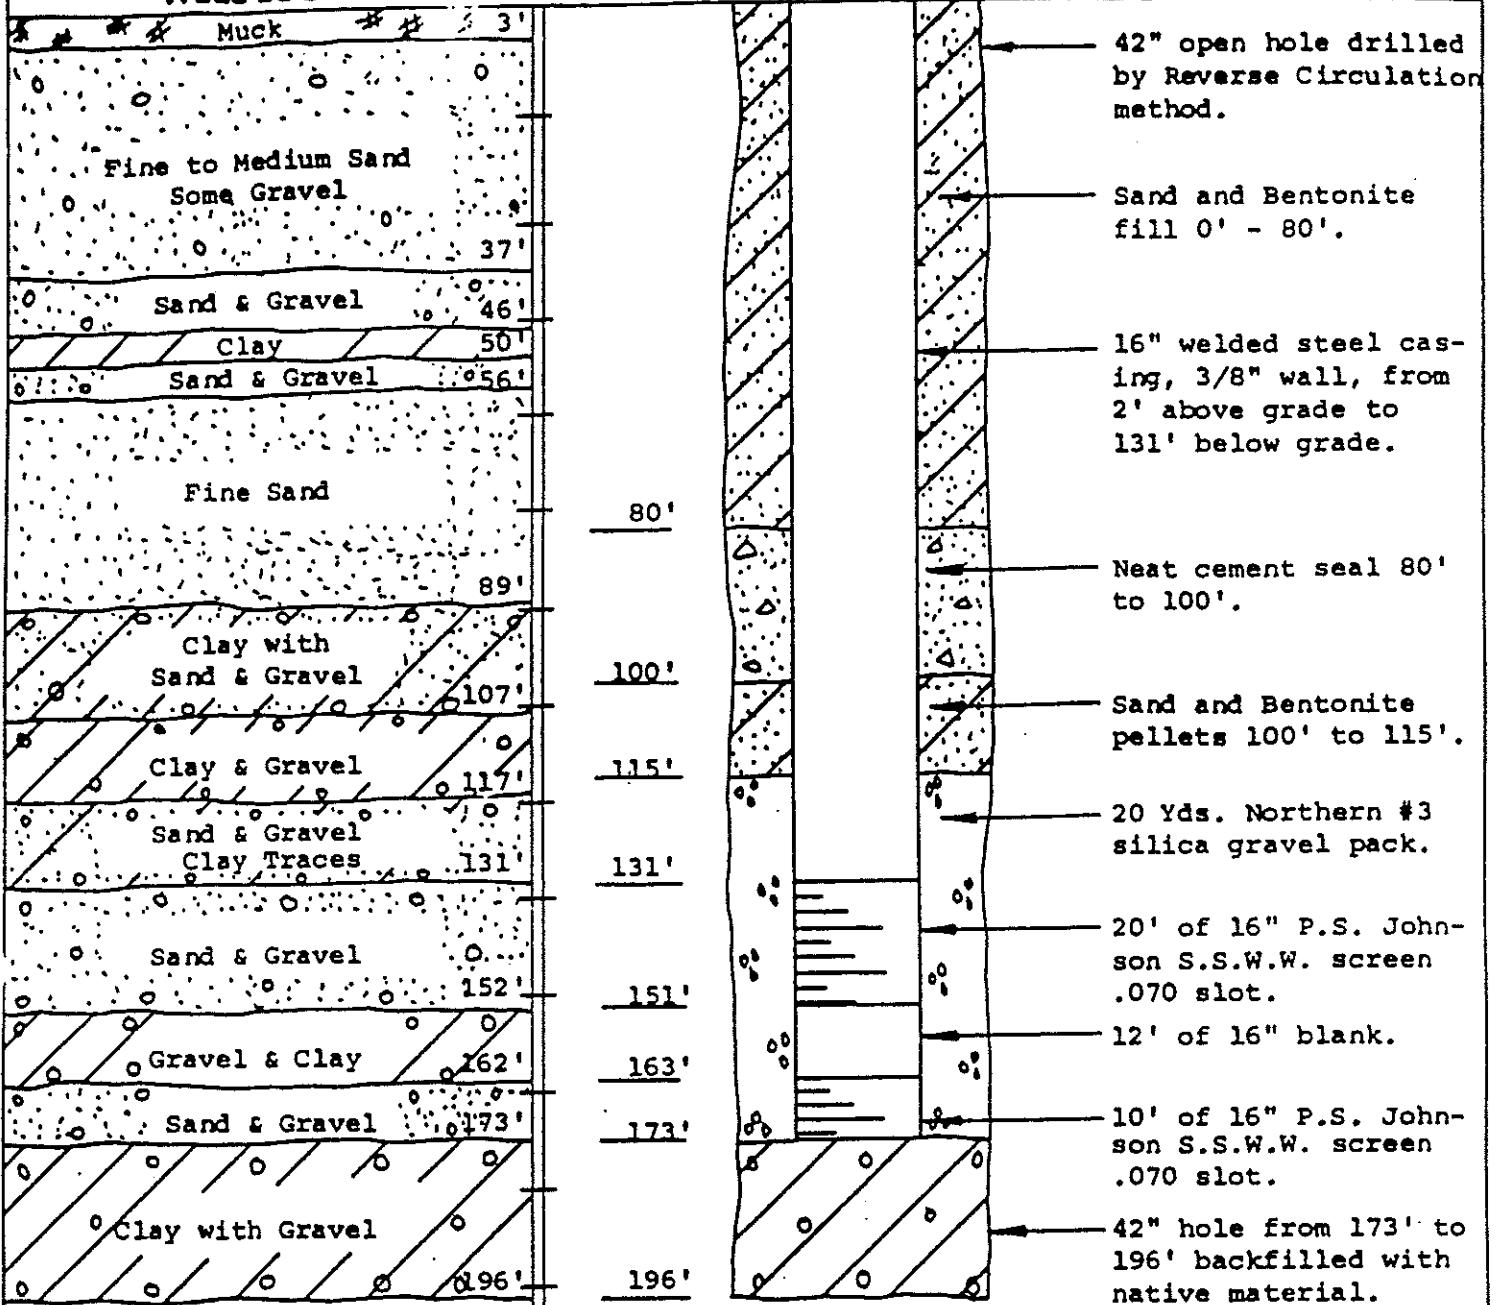 Muck 3'
Fine to Medium Sand
Some Gravel
37'
Sand & Gravel 46'
Clay 50'
Sand & Gravel 56'
Fine Sand
89'
Clay with
Sand & Gravel
107'
Clay & Gravel
117'
Sand & Gravel
Clay Traces 131'
Sand & Gravel
152'
Gravel & Clay 162'
Sand & Gravel 173'
Clay with Gravel
196'
80'
100'
115'
131'
151'
163'
173'
196'
42" open hole drilled
by Reverse Circulation
method.
Sand and Bentonite
fill 0' - 80'.
16" welded steel cas-
ing, 3/8" wall, from
2' above grade to
131' below grade.
Neat cement seal 80'
to 100'.
Sand and Bentonite
pellets 100' to 115'.
20 Yds. Northern #3
silica gravel pack.
20' of 16" P.S. John-
son S.S.W.W. screen
.070 slot.
12' of 16" blank.
10' of 16" P.S. John-
son S.S.W.W. screen
.070 slot.
42" hole from 173' to
196' backfilled with
native material.